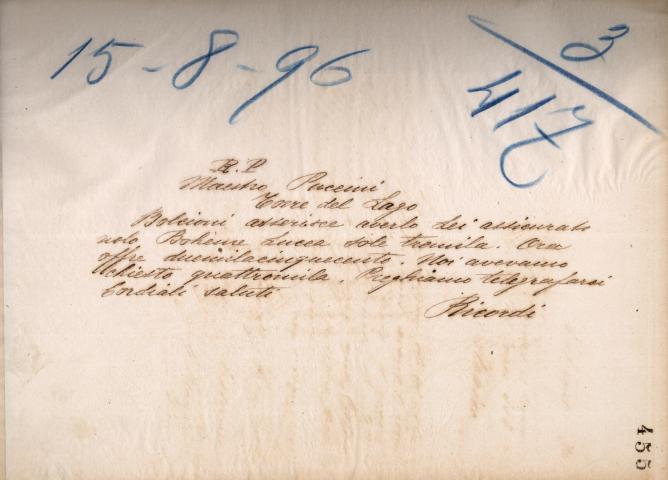 15-8-96
3/417
R. P.
Maestro Puccini
Torre del Lago
Bolcioni asserisce averlo Lei assicurato
nolo Boheme Lucca sole tremila. Ora
offre duemilacinquecento. Noi avevamo
chiesto quattromila. Preghiamo telegrafarci
Cordiali saluti
Ricordi
455